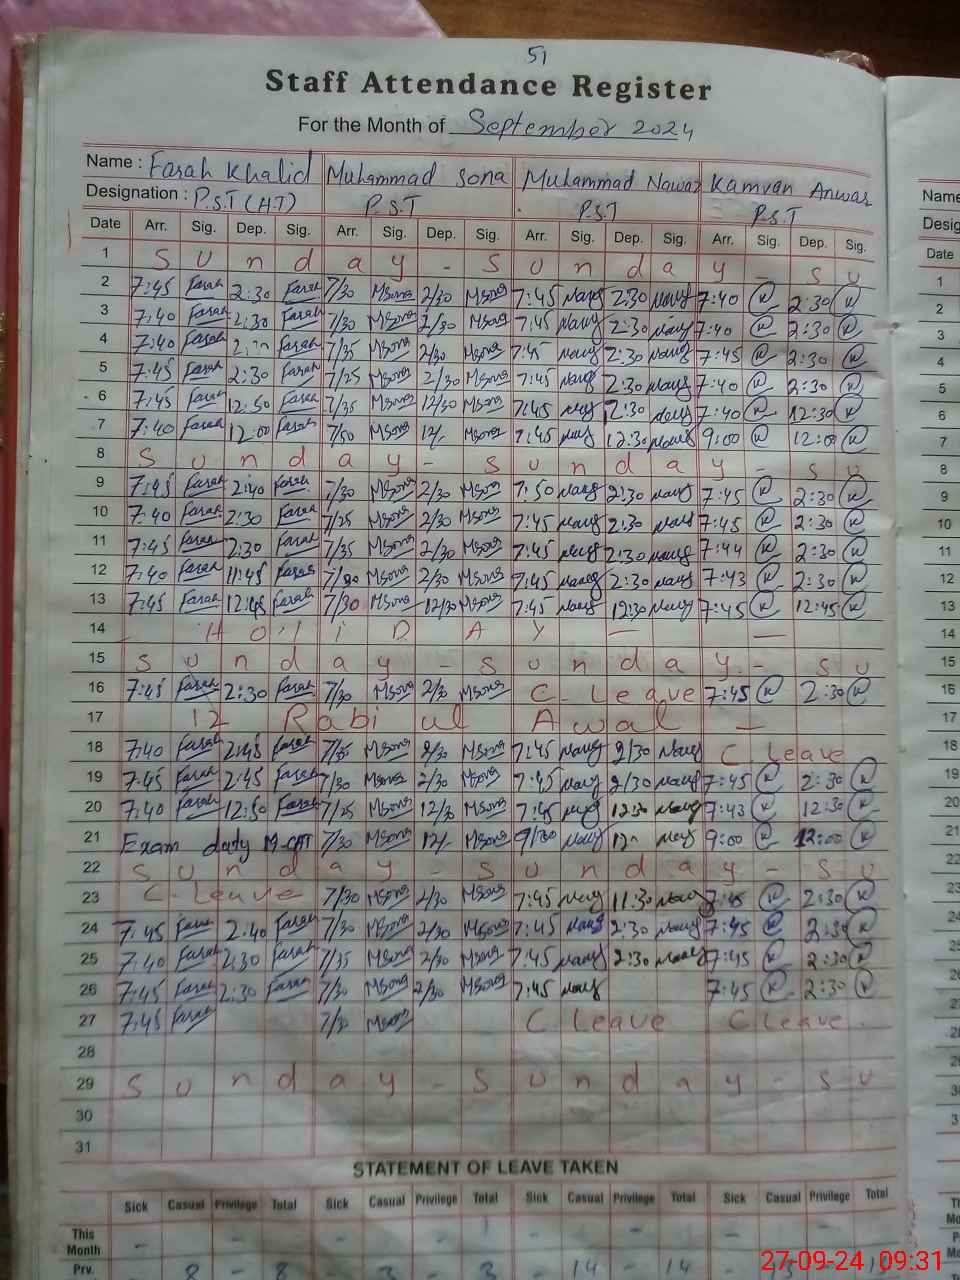 51
Staff Attendance Register
For the Month of September 2024
Name : Farah Khalid Muhammad Sona Muhammad Nawaz Kamran Anwar
Designation : P.S.T (HT) P.S.T P.S.T P.S.T
Date Arr. Sig. Dep. Sig. Arr. Sig. Dep. Sig. Arr. Sig. Dep. Sig. Arr. Sig. Dep. Sig.
1 Sunday - Sunday - Su
2 7:45 Farah 2:30 Farah 7/30 MSona 2/30 MSona 7:45 Nawaz 2:30 Nawaz 7:40 K 2:30 K
3 7:40 Farah 2:30 Farah 7/30 MSona 2/30 MSona 7:45 Nawaz 2:30 Nawaz 7:40 K 2:30 K
4 7:40 Farah Farah 7/35 MSona 2/30 MSona 7:45 Nawaz 2:30 Nawaz 7:45 K 2:30 K
5 7:45 Farah 2:30 Farah 7/25 MSona 2/30 MSona 7:45 Nawaz 2:30 Nawaz 7:40 K 2:30 K
6 7:45 Farah 12:50 Farah 7/35 MSona 12/30 MSona 7:45 Nawaz 12:30 Nawaz 7:40 K 12:30 K
7 7:40 Farah 12:00 Farah 7/50 MSona 12/- MSona 7:45 Nawaz 12:30 Nawaz 9:00 K 12:00 K
8 Sunday - Sunday - Su
9 7:45 Farah 2:40 Farah 7/30 MSona 2/30 MSona 7:50 Nawaz 2:30 Nawaz 7:45 K 2:30 K
10 7:40 Farah 2:30 Farah 7/25 MSona 2/30 MSona 7:45 Nawaz 2:30 Nawaz 7:45 K 2:30 K
11 7:45 Farah 2:30 Farah 7/35 MSona 2/30 MSona 7:45 Nawaz 2:30 Nawaz 7:44 K 2:30 K
12 7:40 Farah 11:45 Farah 7/30 MSona 2/30 MSona 7:45 Nawaz 2:30 Nawaz 7:43 K 2:30 K
13 7:45 Farah 12:45 Farah 7/30 MSona 12/30 MSona 7:45 Nawaz 12:30 Nawaz 7:45 K 12:45 K
14 HOliDAY — —
15 Sunday - Sunday - Su
16 7:45 Farah 2:30 Farah 7/30 MSona 2/30 MSona C - Leave 7:45 K 2:30 K
17 12 Rabi ul Awal —
18 7:40 Farah 2:45 Farah 7/35 MSona 2/30 MSona 7:45 Nawaz 2/30 Nawaz C Leave
19 7:45 Farah 2:45 Farah 7/30 MSona 2/30 MSona 7:45 Nawaz 2/30 Nawaz 7:45 K 2:30 K
20 7:40 Farah 12:50 Farah 7/25 MSona 12/30 MSona 7:45 Nawaz 12:30 Nawaz 7:43 K 12:30 K
21 Exam duty M-CAT 7/30 MSona 12/- MSona 9/00 Nawaz Nawaz 9:00 K 12:00 K
22 Sunday - Sunday - Su
23 C - Leave 7/30 MSona 2/30 MSona 7:45 Nawaz 11:30 Nawaz 7:45 K 2:30 K
24 7:45 Farah 2:40 Farah 7/30 MSona 2/30 MSona 7:45 Nawaz 2:30 Nawaz 7:45 K 2:30 K
25 7:40 Farah 2:30 Farah 7/35 MSona 2/30 MSona 7:45 Nawaz 2:30 Nawaz 7:45 K 2:30 K
26 7:45 Farah 2:30 Farah 7/30 MSona 2/30 MSona 7:45 Nawaz 7:45 K 2:30 K
27 7:45 Farah 7/30 MSona C Leave C Leave
28
29 Sunday - Sunday - Su
30
31
STATEMENT OF LEAVE TAKEN
Sick Casual Privilege Total Sick Casual Privilege Total Sick Casual Privilege Total Sick Casual Privilege Total
This Month
Prv. 8 - 8 - 3 - 3 - 14 - 14
27-09-24 09:31